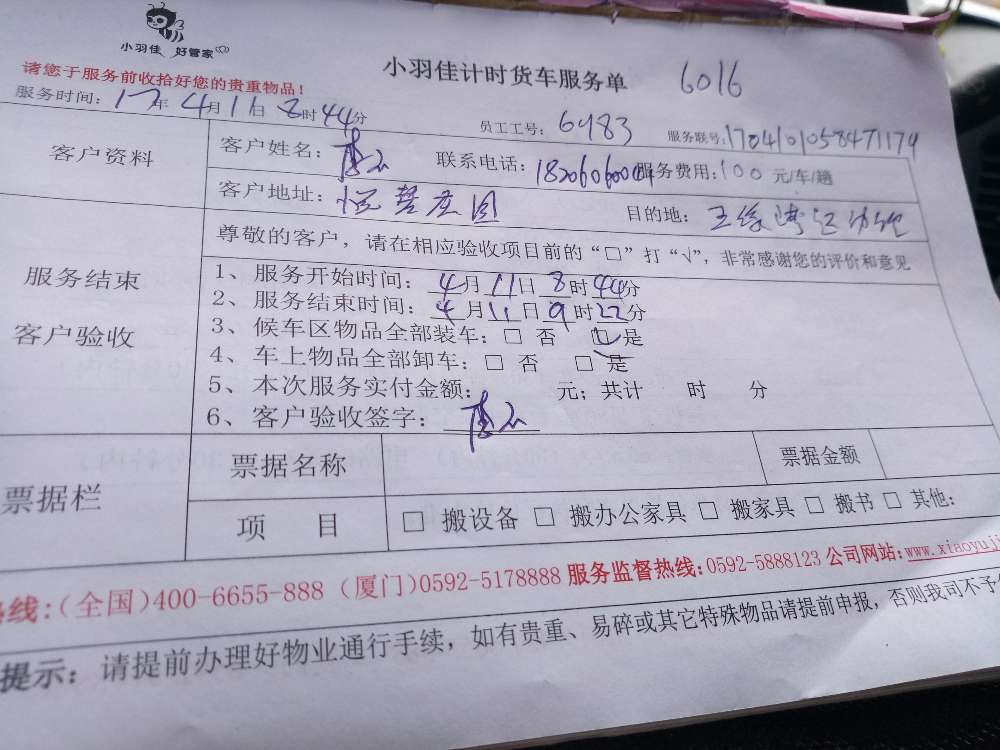 小羽佳 好管家
小羽佳计时货车服务单 6016
请您于服务前收拾好您的贵重物品!
服务时间: 17年4月11日8时44分 员工工号: 6483 服务联号:
客户资料 客户姓名: 联系电话: 服务费用: 100元/车/趟
客户地址: 目的地:
尊敬的客户，请在相应验收项目前的“□”打“√”，非常感谢您的评价和意见
服务结束
客户验收
1、服务开始时间: 4月11日8时44分
2、服务结束时间: 4月11日9时22分
3、候车区物品全部装车: □ 否 □ 是
4、车上物品全部卸车: □ 否 □ 是
5、本次服务实付金额: 元; 共计 时 分
6、客户验收签字:
票据栏 票据名称 票据金额
项 目 □ 搬设备 □ 搬办公家具 □ 搬家具 □ 搬书 □ 其他:
热线:(全国)400-6655-888 (厦门)0592-5178888 服务监督热线:0592-5888123 公司网站:www.xiaoyuji
提示: 请提前办理好物业通行手续，如有贵重、易碎或其它特殊物品请提前申报，否则我司不予